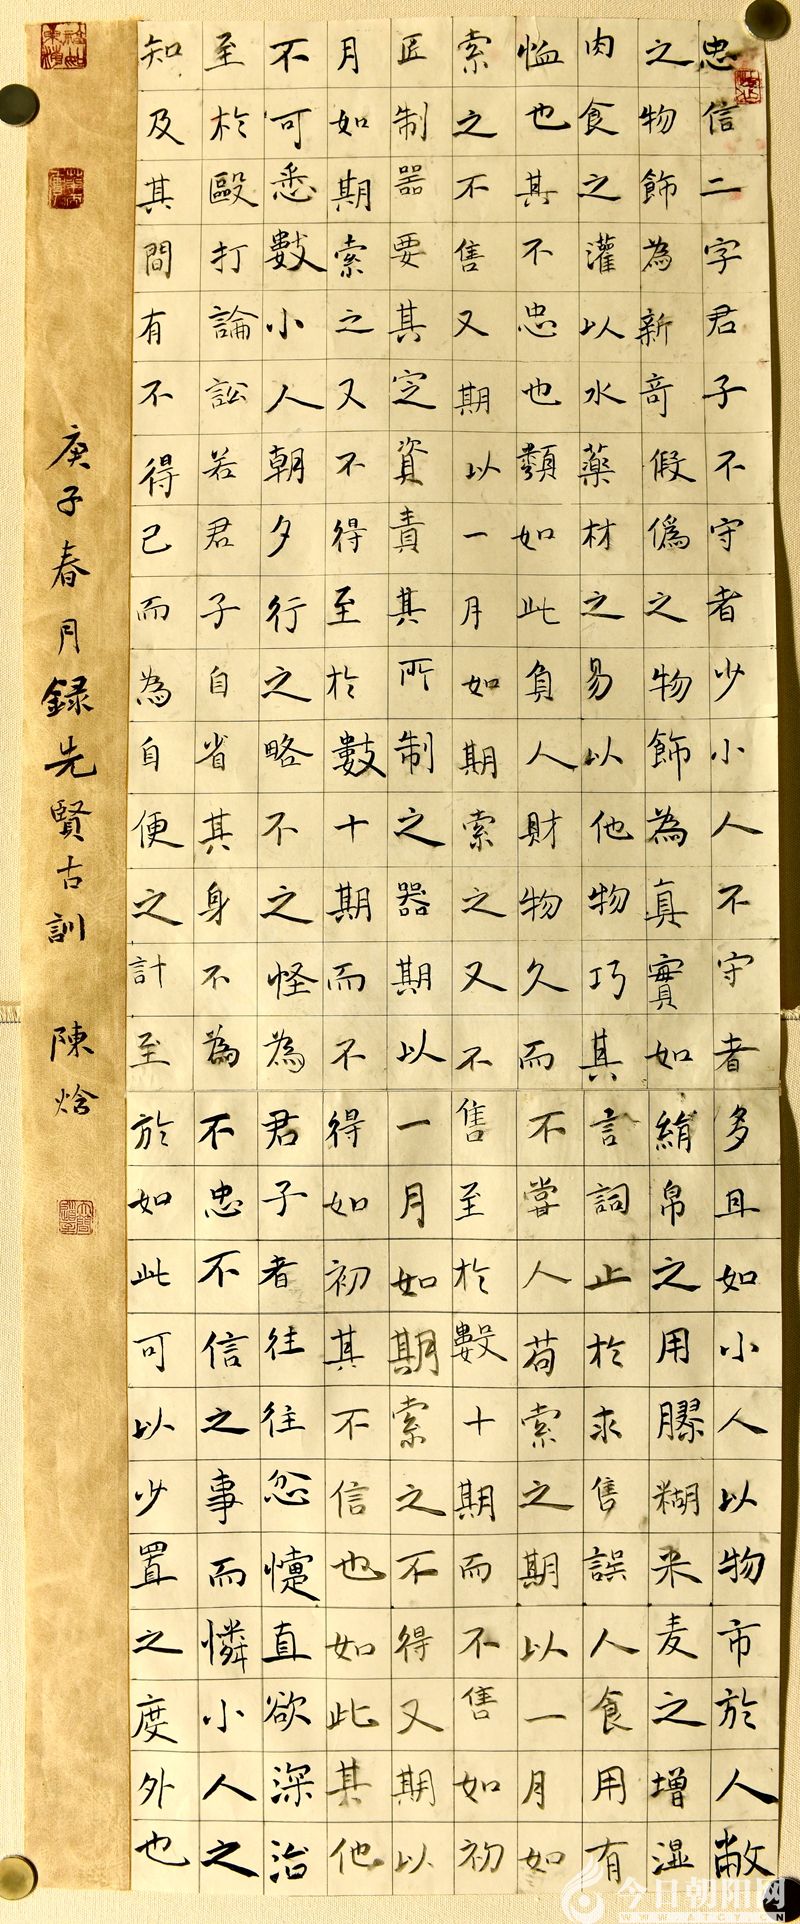 忠信二字君子不守者少小人不守者多且如小人以物市於人敝
之物飾為新奇假偽之物飾為真實如絹帛之用膠糊米麦之增湿
肉食之灌以水藥材之易以他物巧其言詞止於求售誤人食用有
恤也其不忠也類如此負人財物久而不嘗人苟索之期以一月如
索之不售又期以一月如期索之又不售至於數十期而不售如初
匠制器要其定資責其所制之器期以一月如期索之不得又期以
月如期索之又不得至於數十期而不得如初其不信也如此其他
不可悉數小人朝夕行之略不之怪為君子者往往忿懥直欲深治
至於毆打論訟若君子自省其身不為不忠不信之事而憐小人之
知及其間有不得已而為自便之計至於如此可以少置之度外也
庚子春月錄先賢古訓 陳焓
今日朝阳网